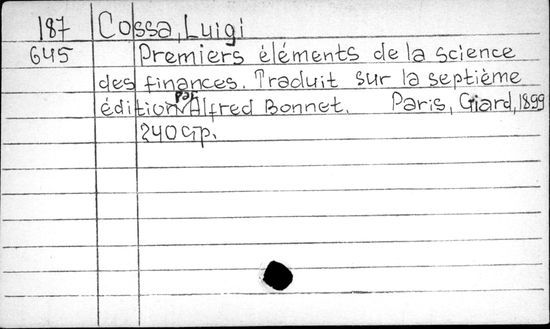 187 Cossa, Luigi
645 Premiers éléments de la science
des finances. Traduit sur la septième
édition par Alfred Bonnet. Paris, Giard, 1899
240 p.